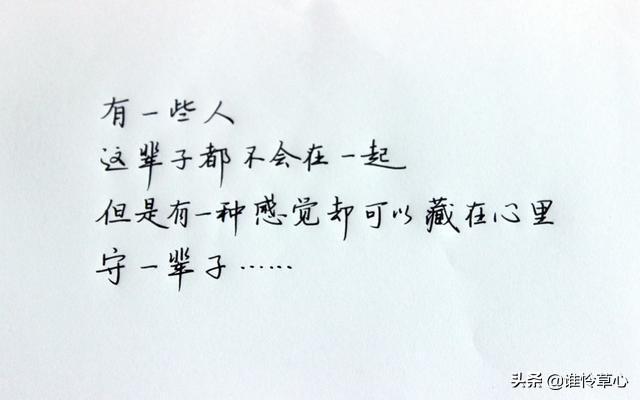 有一些人
这辈子都不会在一起
但是有一种感觉却可以藏在心里
守一辈子……
头条 @谁怜草心